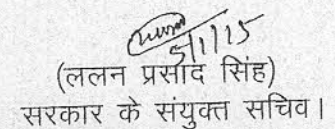 5/1/15
(ललन प्रसाद सिंह)
सरकार के संयुक्त सचिव।